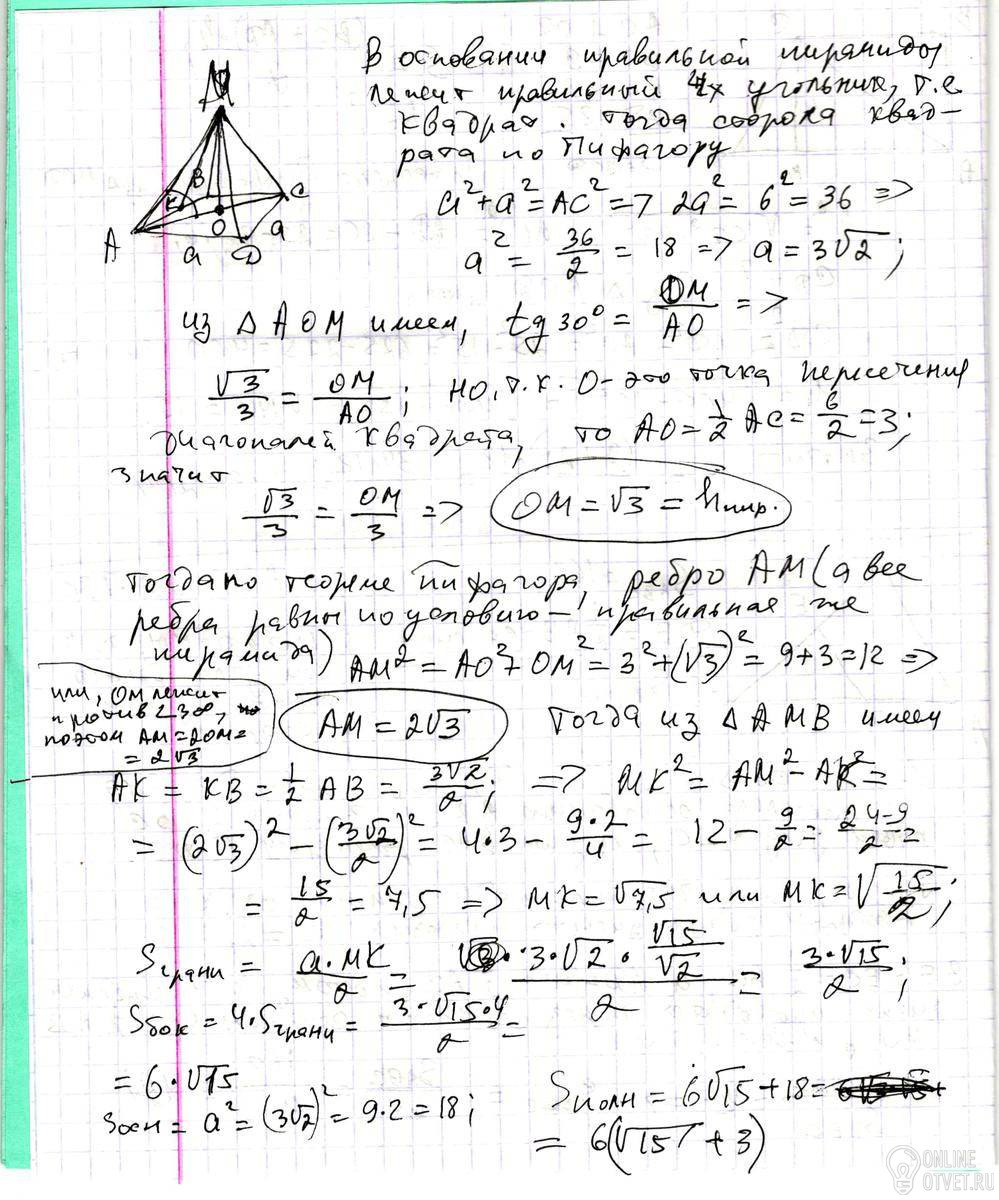 В основании правильной пирамиды
лежит правильный 4х угольник, т.е
квадрат. Тогда сторона квад-
рата по Пифагору
a²+a²=AC² => 2a²=6²=36 =>
a² = 36/2 = 18 => a = 3√2;
M
B
C
K
O
A
a
D
a
из △AOM имеем, tg 30° = OM/AO =>
√3/3 = OM/AO; но, т.к. O-это точка пересечения
диагоналей квадрата, то AO = 1/2 AC = 6/2 = 3;
значит
√3/3 = OM/3 => OM = √3 = hпир.
Тогда по теореме Пифагора, ребро AM (а все
ребра равны по условию - правильная же
пирамида) AM² = AO² + OM² = 3² + (√3)² = 9+3 = 12 =>
или, OM лежит
против ∠30°,
поэтом AM = 2OM =
= 2√3
AM = 2√3 Тогда из △AMB имеем
AK = KB = 1/2 AB = 3√2/2; => MK² = AM² - AK² =
= (2√3)² - (3√2/2)² = 4·3 - 9·2/4 = 12 - 9/2 = 24-9/2 =
= 15/2 = 7,5 => MK = √7,5 или MK = √15/2;
Sграни = a·MK/2 = 3·√2·√15/√2/2 = 3·√15/2;
Sбок = 4·Sграни = 3·√15·4/2 =
= 6·√15
Sосн = a² = (3√2)² = 9·2 = 18;
Sполн = 6√15 + 18 =
= 6(√15 + 3)
ONLINE
OTVET.RU